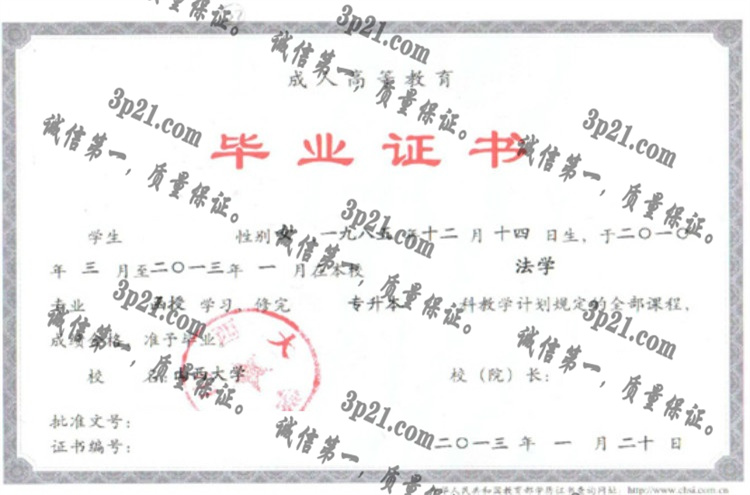 成人高等教育
毕业证书
学生 性别 女 一九八五年十二月十四日生，于二〇一〇
年三月至二〇一三年一月在本校 法学
专业 函授 学习，修完 专升本 科教学计划规定的全部课程，
成绩合格，准予毕业。
校 名：山西大学 校（院）长：
批准文号：
证书编号： 二〇一三年一月二十日
中华人民共和国教育部学历证书查询网址：http://www.chsi.com.cn
西大
3p21.com
诚信第一，质量保证。
3p21.com
诚信第一，质量保证。
3p21.com
诚信第一，质量保证。
3p21.com
诚信第一，质量保证。
3p21.com
诚信第一，质量保证。
3p21.com
诚信第一，质量保证。
质量保证。